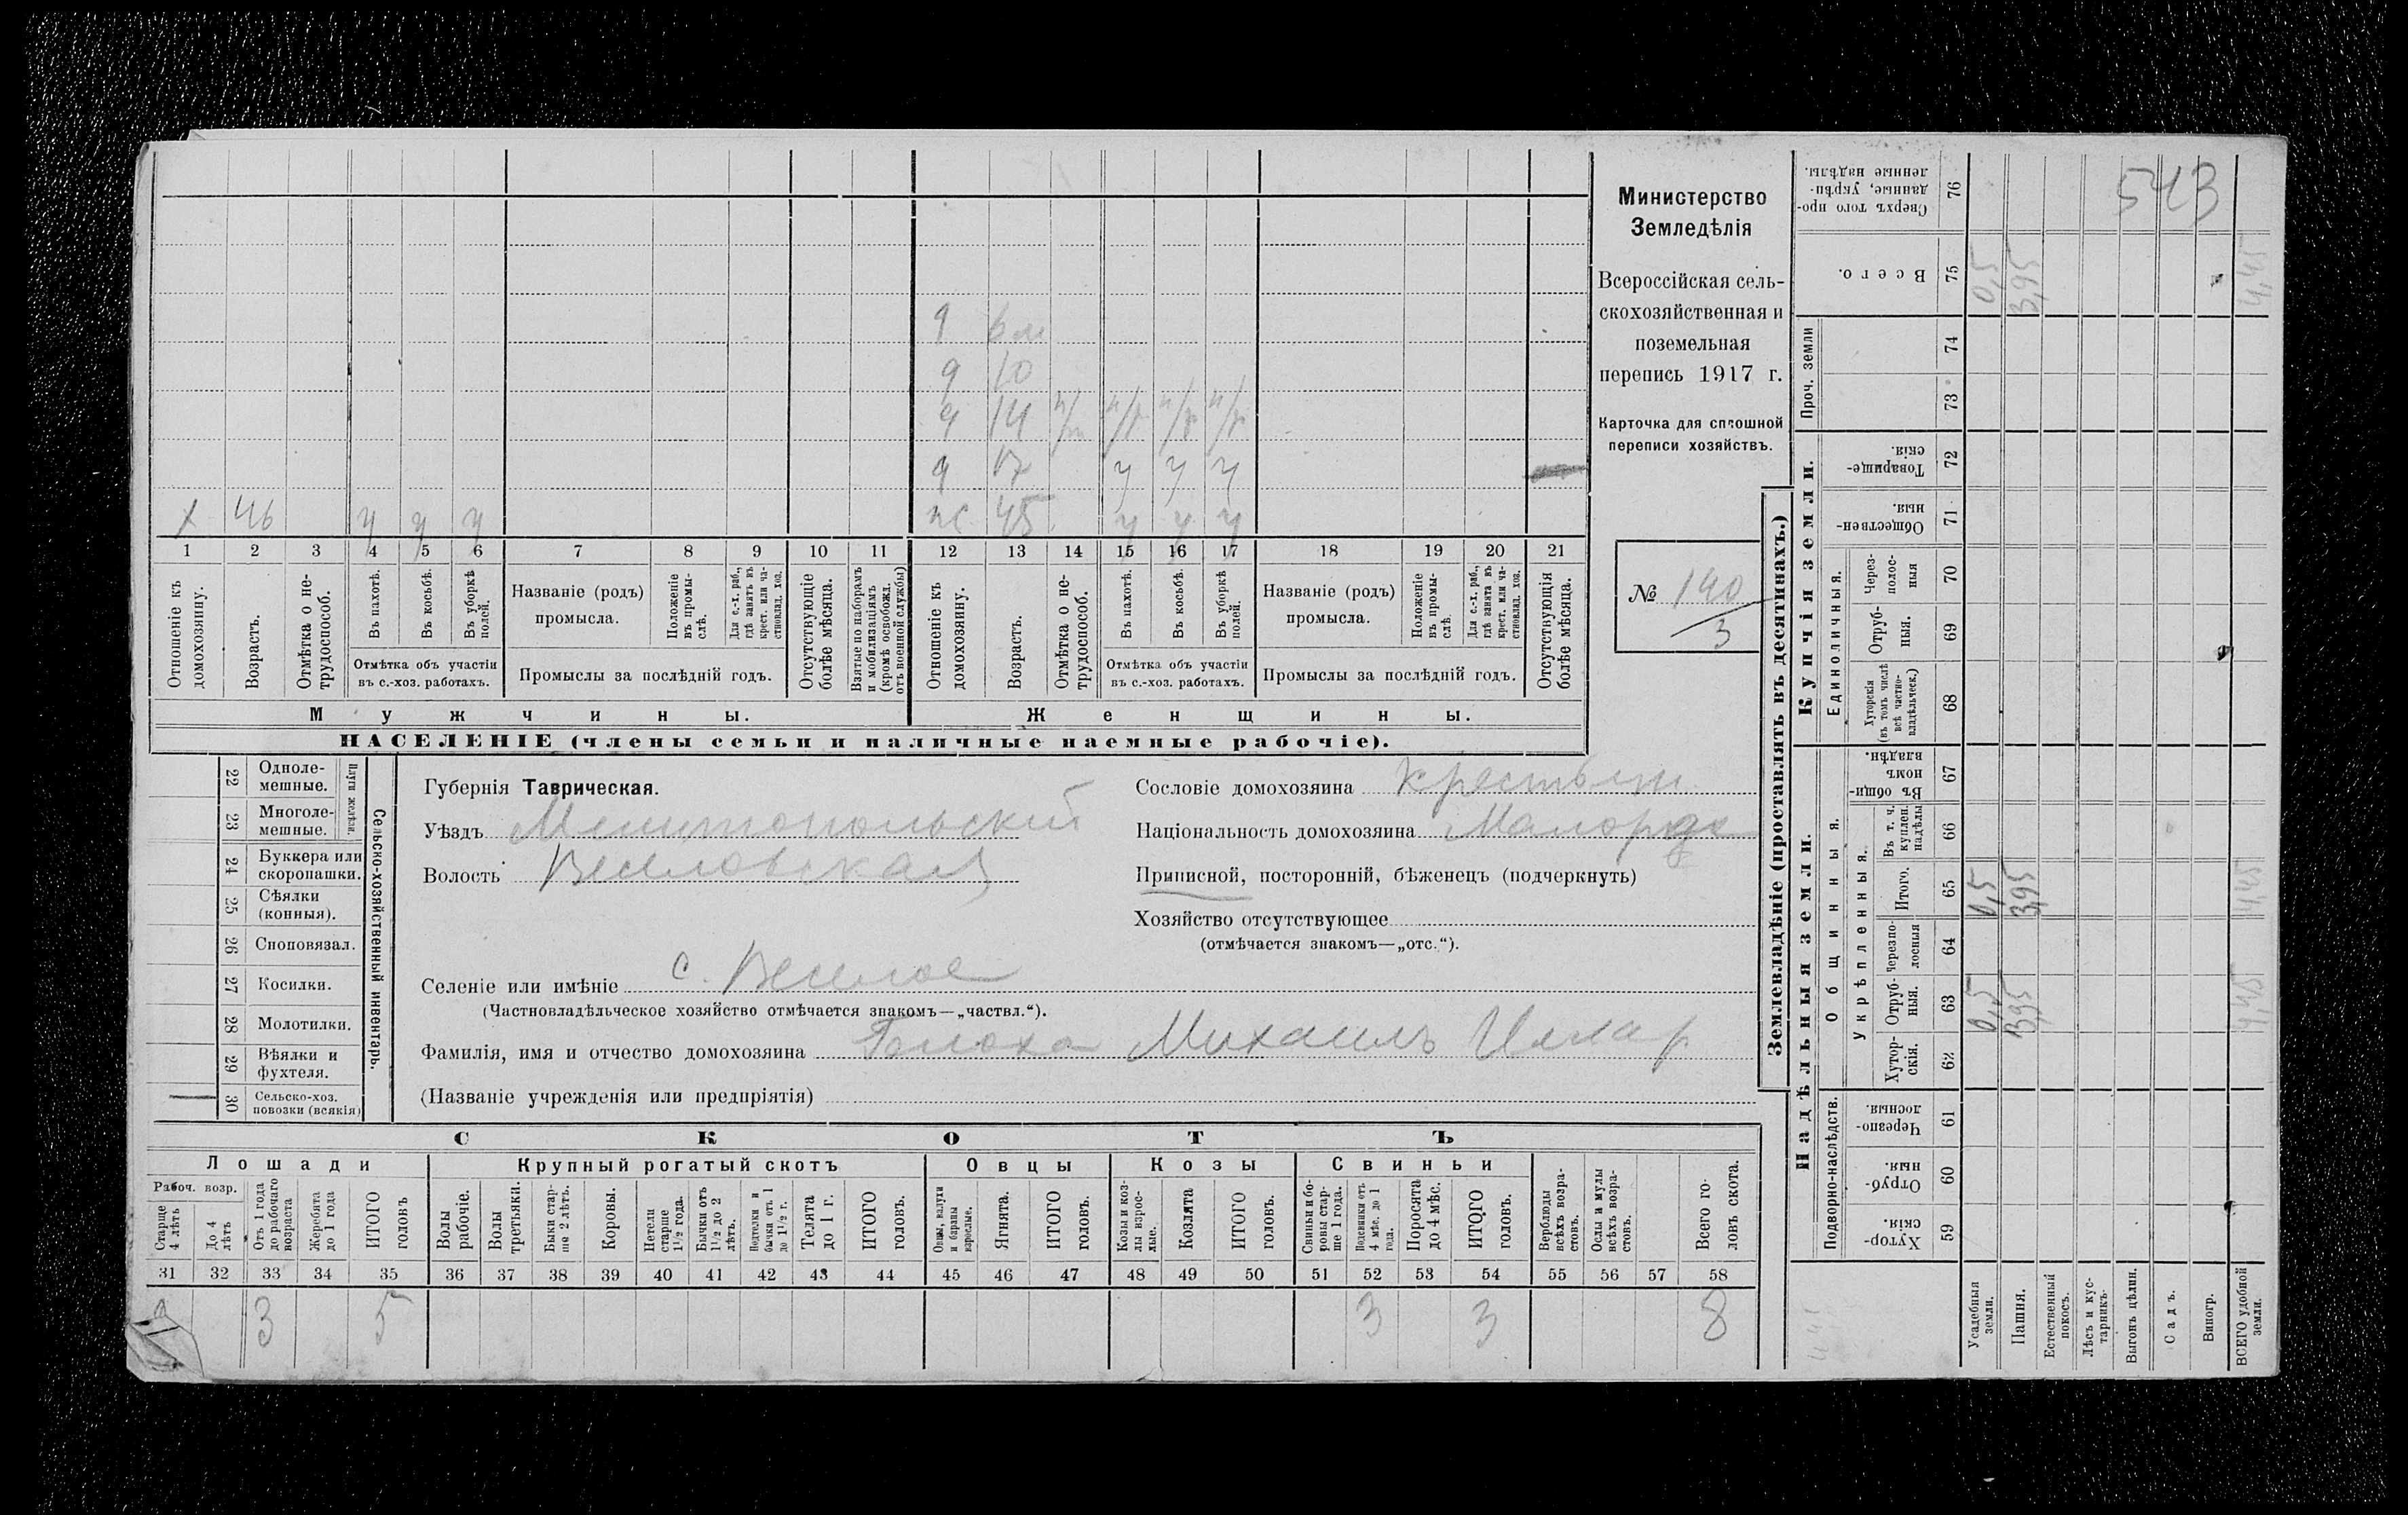 9 6 м
9 10
9 14 н/т н/р н/р н/р
9 17 у у у
х 46 у у у ж 45 у у у
1 2 3 4 5 6 7 8 9 10 11 12 13 14 15 16 17 18 19 20 21
Отношеніе къ домохозяину.
Возрастъ.
Отмѣтка о не-трудоспособ.
Въ пахотѣ.
Въ косьбѣ.
Въ уборкѣ полей.
Отмѣтка объ участіи въ с.-хоз. работахъ.
Названіе (родъ) промысла.
Положеніе въ промы-слѣ.
Для с.-х. раб., гдѣ занятъ въ крест. или ча-стновлад. хоз.
Промыслы за послѣдній годъ.
Отсутствующіе болѣе мѣсяца.
Взятые по наборамъ и мобилизаціямъ (кромѣ освобожд. отъ военной службы)
Отношеніе къ домохозяину.
Возрастъ.
Отмѣтка о не-трудоспособ.
Въ пахотѣ.
Въ косьбѣ.
Въ уборкѣ полей.
Отмѣтка объ участіи въ с.-хоз. работахъ.
Названіе (родъ) промысла.
Положеніе въ промы-слѣ.
Для с.-х. раб., гдѣ занята въ крест. или ча-стновлад. хоз.
Промыслы за послѣдній годъ.
Отсутствующія болѣе мѣсяца.
Мужчины.
Женщины.
НАСЕЛЕНІЕ (члены семьи и наличные наемные рабочіе).
Министерство
Земледѣлія
Всероссійская сель-
скохозяйственная и
поземельная
перепись 1917 г.
Карточка для сплошной
переписи хозяйствъ.
№ 140
3
22 Одноле-мешные.
23 Многоле-мешные.
Плуги желѣзн.
24 Буккера или скоропашки.
25 Сѣялки (конныя).
26 Сноповязал.
27 Косилки.
28 Молотилки.
29 Вѣялки и фухтеля.
30 Сельско-хоз. повозки (всякія)
Сельско-хозяйственный инвентарь.
Губернія Таврическая.
Уѣздъ Мелитопольскій
Волость Веселовская
Сословіе домохозяина крестьян.
Національность домохозяина
Приписной, посторонній, бѣженецъ (подчеркнуть)
Хозяйство отсутствующее
(отмѣчается знакомъ—„отс.“).
Селеніе или имѣніе с. Веселое
(Частновладѣльческое хозяйство отмѣчается знакомъ—„частвл.“).
Фамилія, имя и отчество домохозяина Михаилъ
(Названіе учрежденія или предпріятія)
СКОТЪ
Лошади
Крупный рогатый скотъ
Овцы
Козы
Свиньи
Рабоч. возр.
Старше 4 лѣтъ
До 4 лѣтъ
Отъ 1 года до рабочаго возраста
Жеребята до 1 года
ИТОГО головъ
Волы рабочіе.
Волы третьяки.
Быки стар-ше 2 лѣтъ.
Коровы.
Нетели старше 1½ года.
Бычки отъ 1½ до 2 лѣтъ.
Подтелки и бычки отъ 1 до 1½ г.
Телята до 1 г.
ИТОГО головъ.
Овцы, валухи и бараны взрослые.
Ягнята.
ИТОГО головъ.
Козы и коз-лы взрос-лые.
Козлята
ИТОГО головъ.
Свиньи и бо-ровы стар-ше 1 года.
Подсвинки отъ 4 мѣс. до 1 года.
Поросята до 4 мѣс.
ИТОГО головъ.
Верблюды всѣхъ возра-стовъ.
Ослы и мулы всѣхъ возра-стовъ.
Всего го-ловъ скота.
31 32 33 34 35 36 37 38 39 40 41 42 43 44 45 46 47 48 49 50 51 52 53 54 55 56 57 58
3 5 3 3 8
Землевладѣніе (проставлять въ десятинахъ.)
Надѣльныя земли.
Купчія земли.
Проч. земли
Подворно-наслѣдств.
Общинныя.
Укрѣпленныя.
Единоличныя.
Сверхъ того про-данные, укрѣп-ленные надѣлы. 76
543
Всего. 75 0,5 3,95 4,45
74
73
Товарище-скія. 72
Обществен-ныя. 71
Через-полос-ныя 70
Отруб-ныя. 69
Хуторскія (въ томъ числѣ всѣ частно-владѣльческ.) 68
Въ общи-номъ владѣн. 67
Въ т. ч. куплен. надѣлы 66
Итого. 65 0,5 3,95 4,45
Черезпо-лосныя 64
Отруб-ныя. 63 0,5 3,95 4,45
Хутор-скія. 62
Черезпо-лосныя. 61
Отруб-ныя. 60
Хутор-скія. 59
Усадебныя земли.
Пашня.
Естественный покосъ.
Лѣсъ и кус-тарникъ.
Выгонъ цѣлин.
Садъ.
Виногр.
ВСЕГО удобной земли.